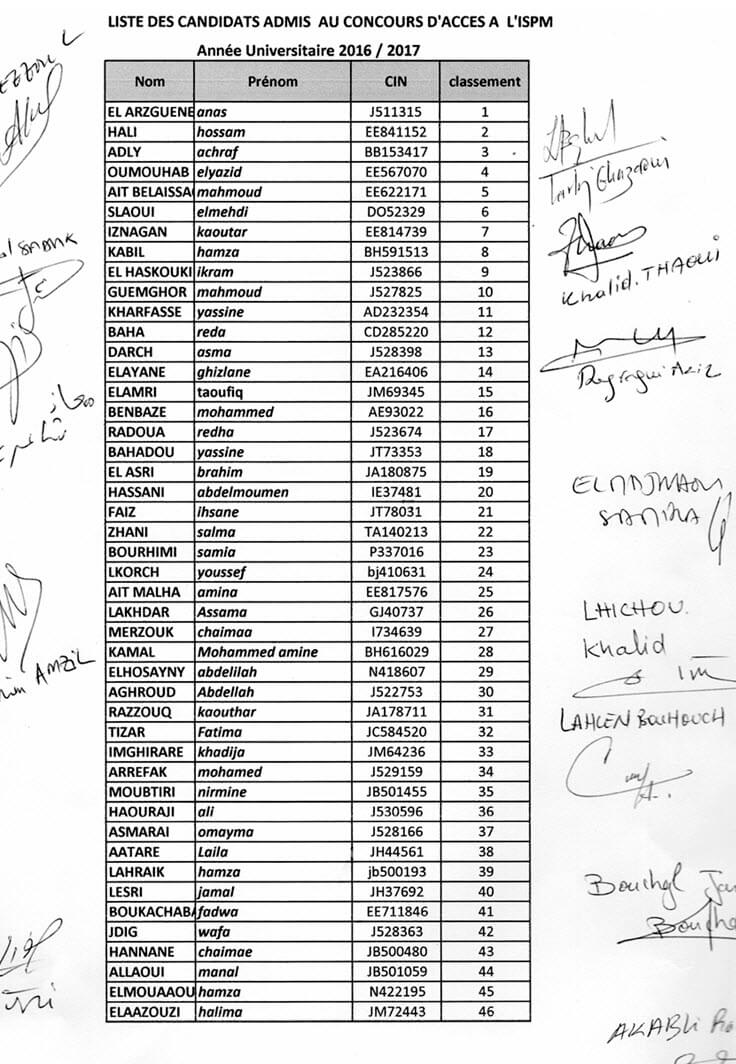 LISTE DES CANDIDATS ADMIS AU CONCOURS D'ACCES A L'ISPM
Année Universitaire 2016 / 2017
Nom Prénom CIN classement
EL ARZGUENE anas J511315 1
HALI hossam EE841152 2
ADLY achraf BB153417 3
OUMOUHAB elyazid EE567070 4
AIT BELAISSA mahmoud EE622171 5
SLAOUI elmehdi DO52329 6
IZNAGAN kaoutar EE814739 7
KABIL hamza BH591513 8
EL HASKOUKI ikram J523866 9
GUEMGHOR mahmoud J527825 10
KHARFASSE yassine AD232354 11
BAHA reda CD285220 12
DARCH asma J528398 13
ELAYANE ghizlane EA216406 14
ELAMRI taoufiq JM69345 15
BENBAZE mohammed AE93022 16
RADOUA redha J523674 17
BAHADOU yassine JT73353 18
EL ASRI brahim JA180875 19
HASSANI abdelmoumen IE37481 20
FAIZ ihsane JT78031 21
ZHANI salma TA140213 22
BOURHIMI samia P337016 23
LKORCH youssef bj410631 24
AIT MALHA amina EE817576 25
LAKHDAR Assama GJ40737 26
MERZOUK chaimaa I734639 27
KAMAL Mohammed amine BH616029 28
ELHOSAYNY abdelilah N418607 29
AGHROUD Abdellah J522753 30
RAZZOUQ kaouthar JA178711 31
TIZAR Fatima JC584520 32
IMGHIRARE khadija JM64236 33
ARREFAK mohamed J529159 34
MOUBTIRI nirmine JB501455 35
HAOURAJI ali J530596 36
ASMARAI omayma J528166 37
AATARE Laila JH44561 38
LAHRAIK hamza jb500193 39
LESRI jamal JH37692 40
BOUKACHABA fadwa EE711846 41
JDIG wafa J528363 42
HANNANE chaimae JB500480 43
ALLAOUI manal JB501059 44
ELMOUAAOU hamza N422195 45
ELAAZOUZI halima JM72443 46
Khalid.THAOUI
LHICHOU
Khalid
LAHCEN BOUHOUCH
AMZIL